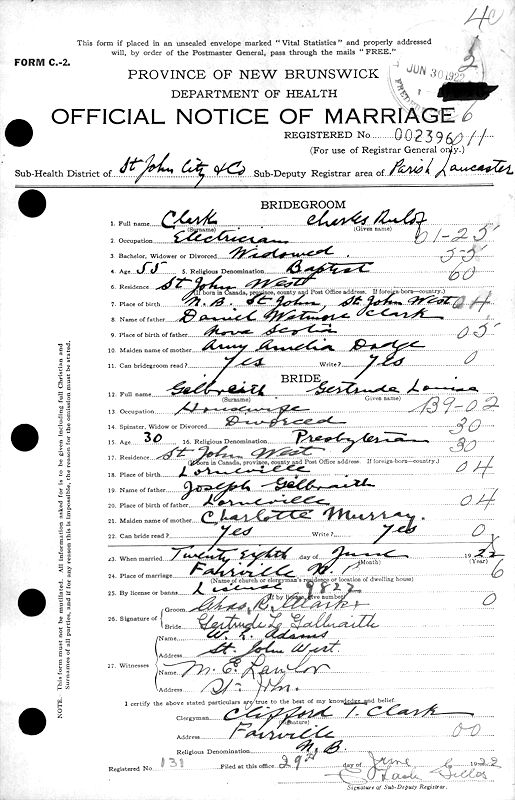 40
This form if placed in an unsealed envelope marked "Vital Statistics" and properly addressed
will, by order of the Postmaster General, pass through the mails "FREE."
FORM C.-2.
JUN 30 1922
2
PROVINCE OF NEW BRUNSWICK
DEPARTMENT OF HEALTH
OFFICIAL NOTICE OF MARRIAGE
6
REGISTERED No. 002396 011
(For use of Registrar General only.)
Sub-Health District of St John City & Co Sub-Deputy Registrar area of Parish Lancaster
BRIDEGROOM
1. Full name Clark Charles
(Surname) (Given name)
01-25
2. Occupation Electrician
3. Bachelor, Widower or Divorced Widowed 55
4. Age 55 5. Religious Denomination Baptist 60
6. Residence St John West
(If born in Canada, province, county and Post Office address. If foreign-born—country.)
7. Place of birth N.B. St John St John West 04
8. Name of father Daniel Wetmore Clark
9. Place of birth of father Nova Scotia 05
10. Maiden name of mother Amy Amelia Dodge
11. Can bridegroom read? Yes Write? Yes 0
BRIDE
12. Full name Gelbraith Gertrude Louisa
(Surname) (Given name)
13. Occupation Housewife 139-02
14. Spinster, Widow or Divorced Divorced 30
15. Age 30 16. Religious Denomination Presbyterian 30
17. Residence St John West
(If born in Canada, province, county and Post Office address. If foreign-born—country.)
18. Place of birth Lorneville 04
19. Name of father Joseph Gelbraith
20. Place of birth of father Lorneville 04
21. Maiden name of mother Charlotte Murray.
22. Can bride read? Yes Write? Yes 0
23. When married Twenty Eighth day of June 1922
(Month) (Year)
24. Place of marriage Fairville N.B. 6
(Name of church or clergyman's residence or location of dwelling house)
25. By license or banns License 9827
(If by license, give number)
0
26. Signature of
Groom Chas. B. Clark
Bride Gertrude L. Galbraith
27. Witnesses
Name W. L. Adams
Address St. John West.
Name M. E. Lawlor
Address St. John.
I certify the above stated particulars are true to the best of my knowledge and belief.
Clergyman Clifford T. Clark
(Signature)
Address Fairville 00
Religious Denomination N. B.
Registered No. 131 Filed at this office 29th day of June 1922
Signature of Sub-Deputy Registrar.
NOTE. This form must not be mutilated. All information asked for is to be given including full Christian and
Surnames of all parties, and if for any reason this is impossible, the reason for the omission must be stated.